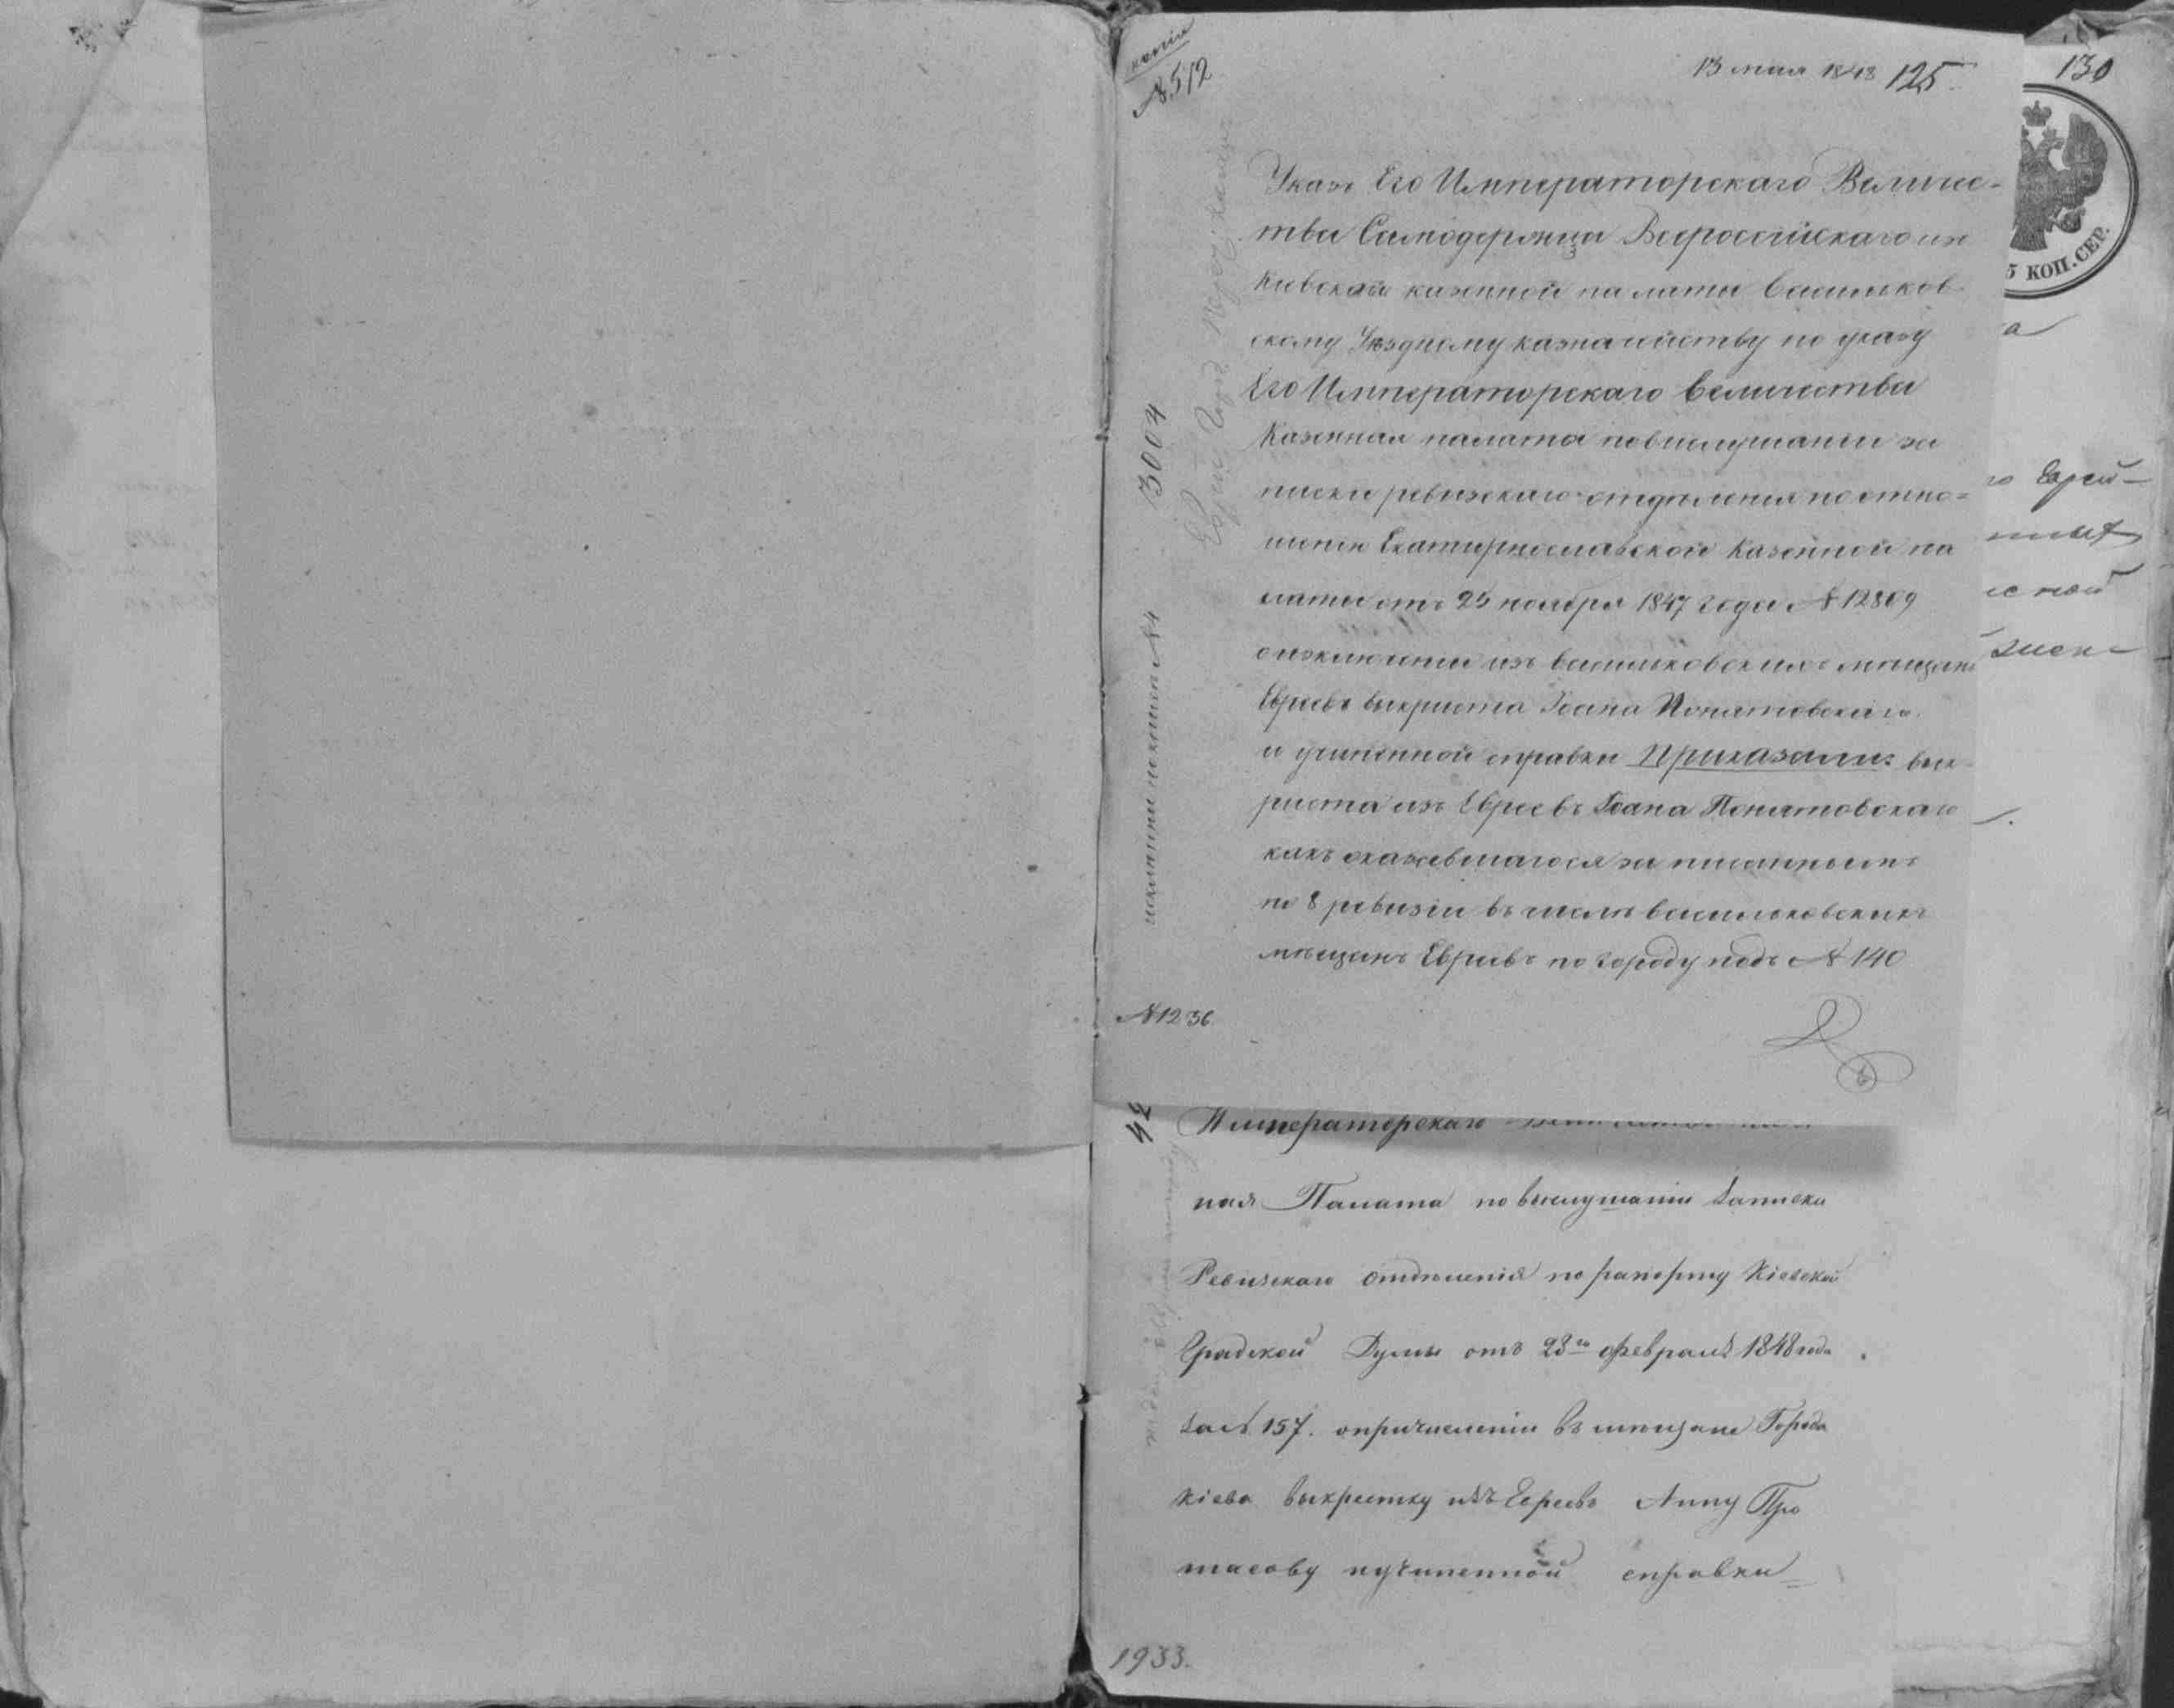 копія
№ 512
13 мая 1848 125
130
Указъ Его Императорскаго Величес-
тва Самодержца Всероссійскаго изъ
Кіевской казенной палаты Васильков
скому Уѣздному казначейству по указу
Его Императорскаго Величества
Казенная палата по выслушаніи за
писки ревизскаго отдѣленія по отно=
шенію Екатеринославской Казенной па
латы отъ 25 ноября 1847 года № 12809
о изключеніи изъ васильковскихъ мѣщанъ
Евреевъ выкреста Іоана Понятовскаго
и учиненной справки Приказали: вык
реста изъ Евреевъ Іоана Понятовскаго
какъ оказавшагося записаннымъ
по 8 ревизіи въ числѣ васильковскихъ
мѣщанъ Евреевъ по городу подъ № 140
3004
№ 1236
5 КОП. СЕР.
42
Императорскаго
ная Палата по выслушаніи записки
Ревизскаго отдѣленія по рапорту Кіевской
Градской Думы отъ 23го февраля 1848 года
за № 157. о причисленіи въ мѣщане Города
Кіева выкрестку изъ Евреевъ Анну Про
тасову и учиненной справки
1933.